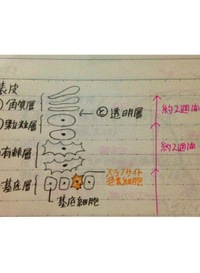 表皮
角質層
透明層
顆粒層
有棘層
メラノサイト
色素細胞
基底層
基底細胞
約2週間
約2週間